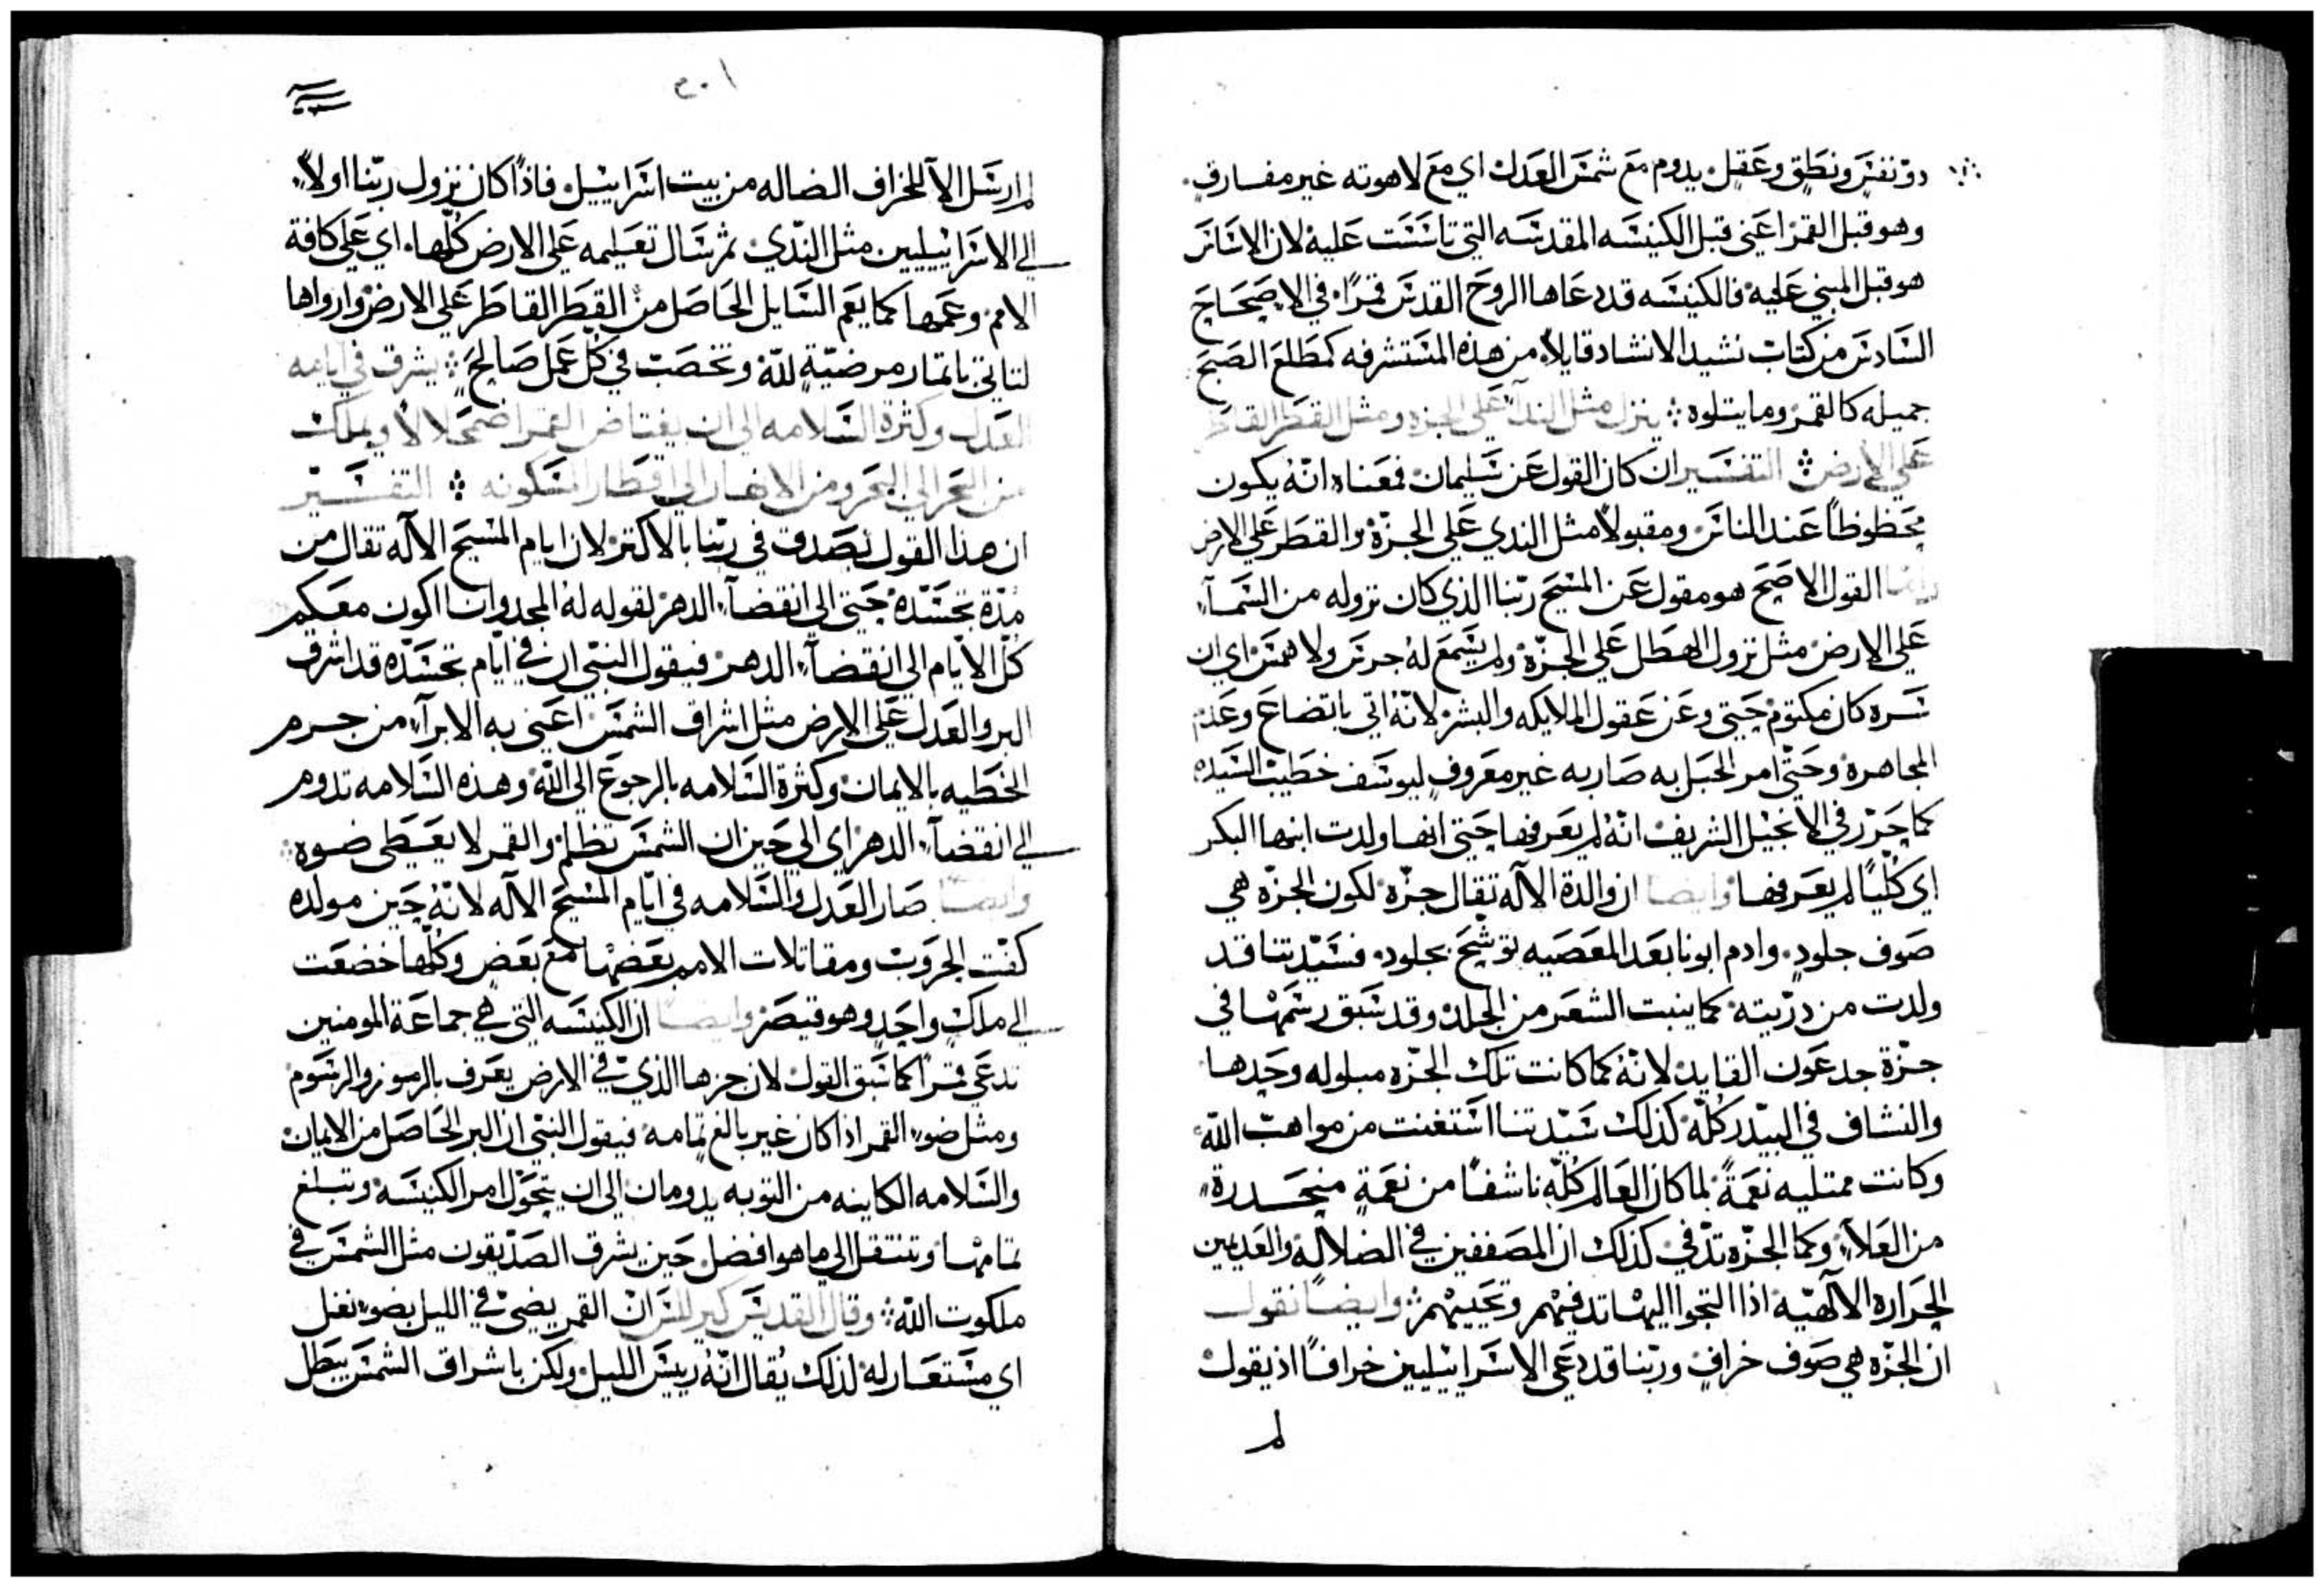 ذو نفسٍ ونطقٍ وعقلٍ يدوم مع شمس العدل اي مع لاهوته غير مفارقٍ.
وهو قبل القمر اعني قبل الكنيسه المقدسه التي تاسست عليه لان الاساس
هو قبل المبني عليه فالكنيسه قد دعاها الروح القدس قمرًا في الاصحاح
السادس من كتاب نشيد الانشاد قايلاً من هذه المستشرفه كمطلع الصبح
جميله كالقمر وما يتلوه ۞ ينزل مثل الندآ على الجزه ومثل القطر القاطر
علي الارض ۞ التفسير ان كان القول عن سليمان فمعناه انّه يكون
محظوظاً عند الناس ومقبولاً مثل الندي علي الجزّة والقطر علي الارض
وامّا القول الاصح هو مقول عن المسيح ربّنا الذي كان نزوله من السمآء
علي الارض مثل نزول الهطل علي الجزّة ولم يسمع لهُ جرس ولا همس اي ان
سره كان مكتوم حتي وعن عقول الملايكه والبشر لانّهُ اتي باتضاع وعدم
المجاهرة وحتّي امر الحبل به صار به غير معروفٍ ليوسف خطيب السيده
كما حرّر في الانجيل الشريف انّهُ لم يعرفها حتي انها ولدت ابنها البكر
اي كليًّا لم يعرفها وايضا ان والدة الآله تقال جزّه لكون الجزّه هي
صوف جلودٍ وادم ابونا بعد المعصيه توشّح بجلود فسيّدتنا قد
ولدت من ذرّيته كما ينبت الشعر من الجلد وقد سبق رسمها في
جزّة جدعون القايد لانّهُ كما كانت تلك الجزّه مبلوله وحدها
والنشاف في البيدر كلّه كذلك سيّدتنا استغنت من مواهب الله
وكانت ممتليه نعمةً لما كان العالم كلّه ناشفًا من نعمةٍ منحدرة
من العلآء وكما الجزّه تدّفي كذلك ان المصقفين في الضلاله والعديمين
الحراره الآلهيّه اذا التجوا اليها تدفيهم وتحييهم ۞ وايضًا نقول
ان الجزّه هي صوف خرافٍ وربّنا قد دعي الاسرائيليين خرافًا اذ يقول
لم
٣٠١
لم ارسل الآ للخراف الضاله من بيت اسراييل فاذًا كان نزول ربّنا اولاً
الي الاسراييليين مثل النّدي ثم سال تعليمه علي الارض كلّها اي علي كافة
الامم وعمها كما يعم السايل الحاصل من القطر القاطر علي الارض وارواها
لتاتي باثمار مرضيّة للّه وتخصب في كل عمل صالح ۞ يشرق في ايامه
العدل وكثرة السلامه الي ان يفتاض القمر اضمحلالاً ويملك
من البحر الي البحر ومن الانهار الي اقطار المسكونه ۞ التفسير
ان هذا القول يصدق في ربّنا بالاكثر لان ايام المسيح الآله تقال من
مدّة تجسّده حتي الي انقضآء الدهر لقوله لهُ المجد وانا اكون معكم
كلّ الايّام الي انقضآء الدهر فيقول النبي ان في ايّام تجسّده قد اشرق
البر والعدل علي الارض مثل اشراق الشمس اعني به الابرآء من جرم
الخطيه بالايمان وكثرة السلامه بالرجوع الي الله وهذه السلامه تدوم
الي انقضآء الدهر اي الي حين ان الشمس تظلم والقمر لا يعطي ضوه
وايضًا صار العدل والسلامه في ايّام المسيح الآله لانّهُ حين مولده
كفّت الحروب ومقاتلات الامم بعضها مع بعض وكلّها خضعت
الي ملكٍ واحدٍ وهو قيصر وايضًا ان الكنيسه التي هي جماعة المومنين
تدعي قمرًا كما سبق القول لان جزها الذي في الارض يعرف بالرموز والرسوم
ومثل ضوء القمر اذا كان غير بالغ تمامه فيقول النبي ان البر الحاصل من الايمان
والسلامه الكاينه من التوبه يدومان الي ان يتحوّل امر الكنيسه وتبلغ
تمامها وتنتقل الي ما هو افضل حين يشرق الصدّيقون مثل الشمس في
ملكوت اللّه ۞ وقال القديس كيرللس ان القمر يضئ في الليل بضوء نغل
اي مستعار له لذلك يُقال انّهُ رييس الليل ولكن باشراق الشمس يبطل